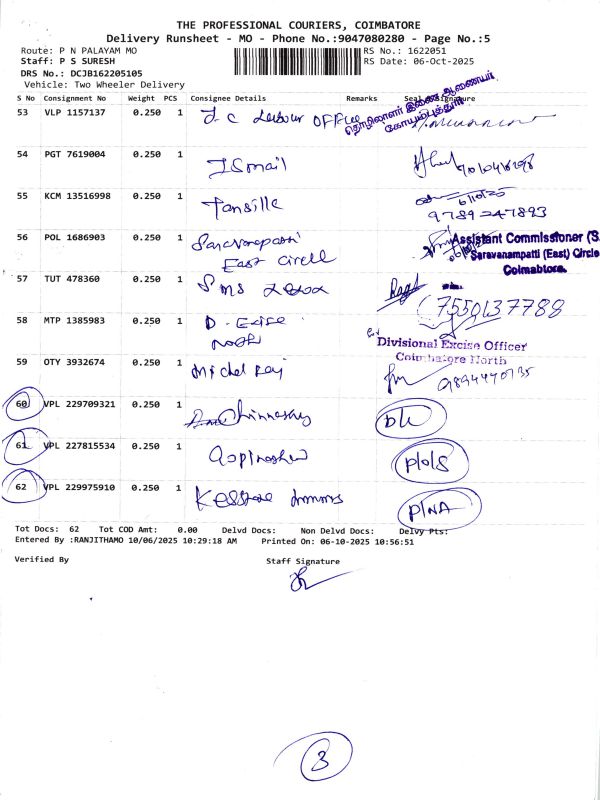 THE PROFESSIONAL COURIERS, COIMBATORE
Delivery Runsheet - MO - Phone No.:9047080280 - Page No.:5
Route: P N PALAYAM MO RS No.: 1622051
Staff: P S SURESH RS Date: 06-Oct-2025
DRS No.: DCJB162205105
Vehicle: Two Wheeler Delivery
S No Consignment No Weight PCS Consignee Details Remarks Seal Signature
தொழிலாளர் இணை ஆணையர்
கோயம்புத்தூர்
53 VLP 1157137 0.250 1 Labour OFFice
54 PGT 7619004 0.250 1 ISmail
55 KCM 13516998 0.250 1 Tansille 6/10/25
9789247893
56 POL 1686903 0.250 1 East Assistant Commissioner (S
Saravanampatti (East) Circle
Coimbatore.
57 TUT 478360 0.250 1 SMS 7550137788
58 MTP 1385983 0.250 1 D. Excise
Divisional Excise Officer
Coimbatore North
59 OTY 3932674 0.250 1 Michel Raj
60 VPL 229709321 0.250 1 Chinnasamy DL
61 VPL 227815534 0.250 1 P/O/S
62 VPL 229975910 0.250 1 P/NA
Tot Docs: 62 Tot COD Amt: 0.00 Delvd Docs: Non Delvd Docs: Delvy Pts:
Entered By :RANJITHAMO 10/06/2025 10:29:18 AM Printed On: 06-10-2025 10:56:51
Verified By Staff Signature
3